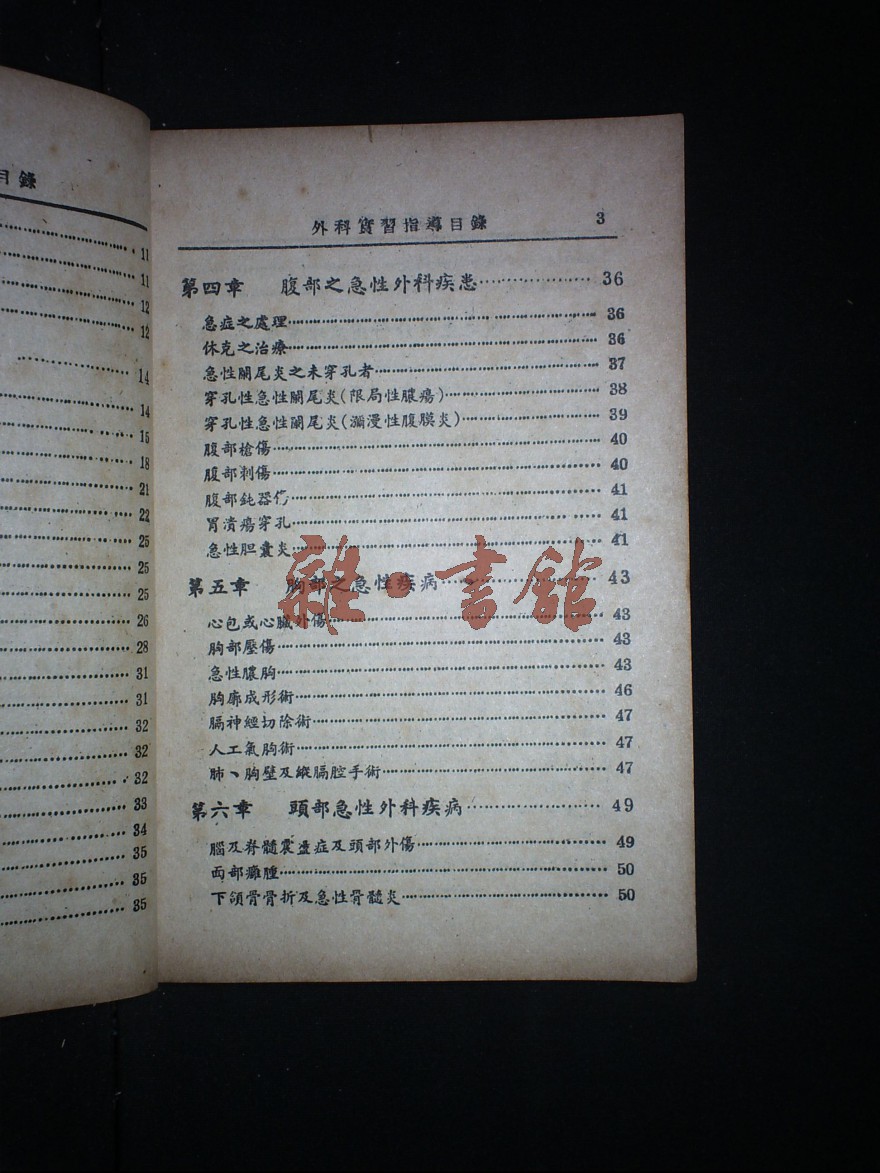 目錄
11
11
12
12
14
14
15
18
21
22
25
25
25
26
28
31
31
32
32
32
33
34
35
35
35
外科實習指導目錄 3
第四章 腹部之急性外科疾患 36
急症之處理 36
休克之治療 36
急性闌尾炎之未穿孔者 37
穿孔性急性闌尾炎(限局性膿瘍) 38
穿孔性急性闌尾炎(瀰漫性腹膜炎) 39
腹部槍傷 40
腹部刺傷 40
腹部鈍器傷 41
胃潰瘍穿孔 41
急性胆囊炎 41
第五章 胸部之急性疾病 43
心包或心臟外傷 43
胸部壓傷 43
急性膿胸 43
胸廓成形術 46
膈神經切除術 47
人工氣胸術 47
肺、胸壁及縱膈腔手術 47
第六章 頭部急性外科疾病 49
腦及脊髓震盪症及頭部外傷 49
面部癰腫 50
下頜骨骨折及急性骨髓炎 50
雜·書館